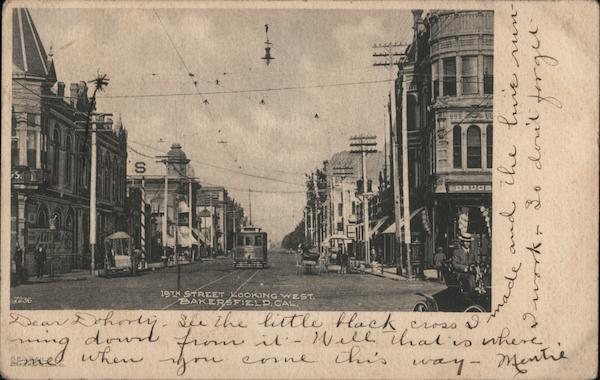 S
S.
DRUGS
19TH STREET LOOKING WEST.
BAKERSFIELD, CAL.
7236
Dear Dohorty - See the little black cross I
made and the line run-
ning down from it - Well that is where
I work - So don't forget
me when you come this way - Montie